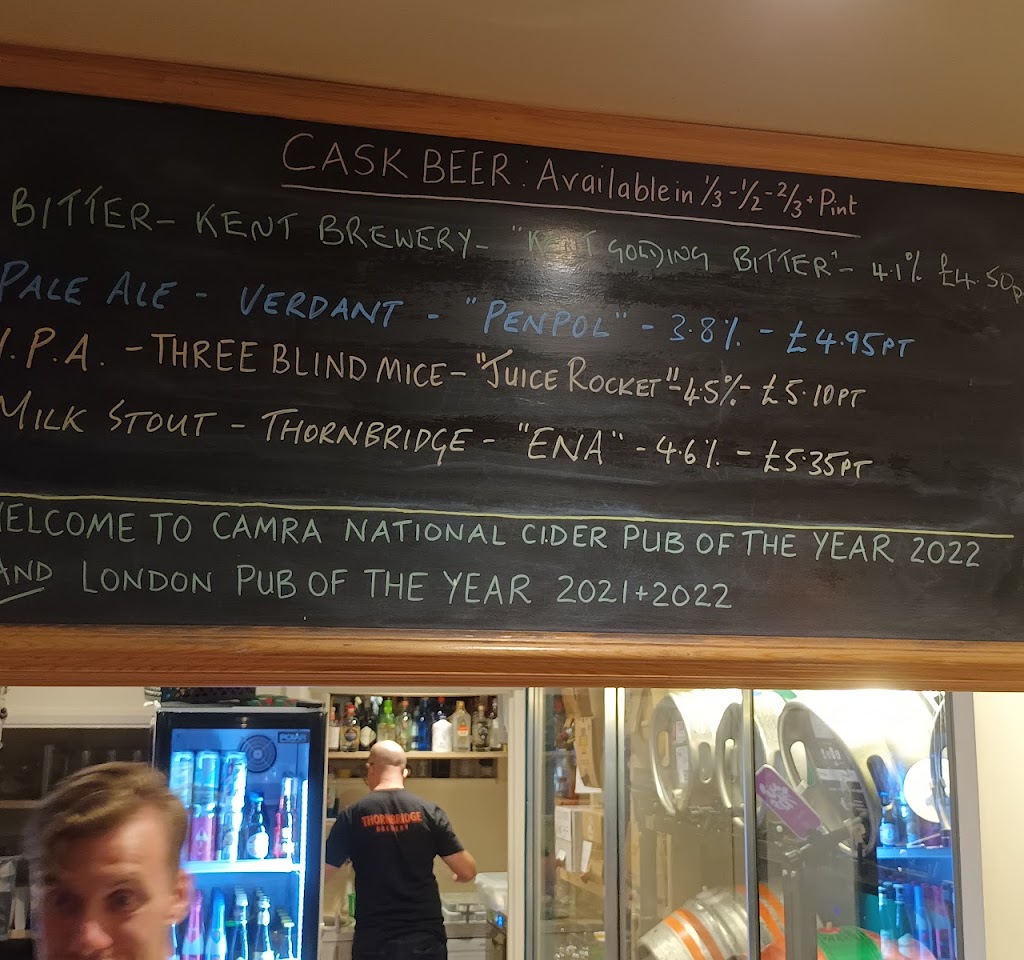 CASK BEER: Available in 1/3-1/2-2/3+ Pint
BITTER- KENT BREWERY- "KENT GOLDING BITTER"- 4.1% £4.50p
PALE ALE - VERDANT - "PENPOL" - 3.8% - £4.95PT
I.P.A. - THREE BLIND MICE- "JUICE ROCKET"-4.5%- £5.10PT
MILK STOUT - THORNBRIDGE - "ENA" - 4.6% - £5.35PT
WELCOME TO CAMRA NATIONAL CIDER PUB OF THE YEAR 2022
AND LONDON PUB OF THE YEAR 2021+2022
POLAR
THORNBRIDGE
BREWERY